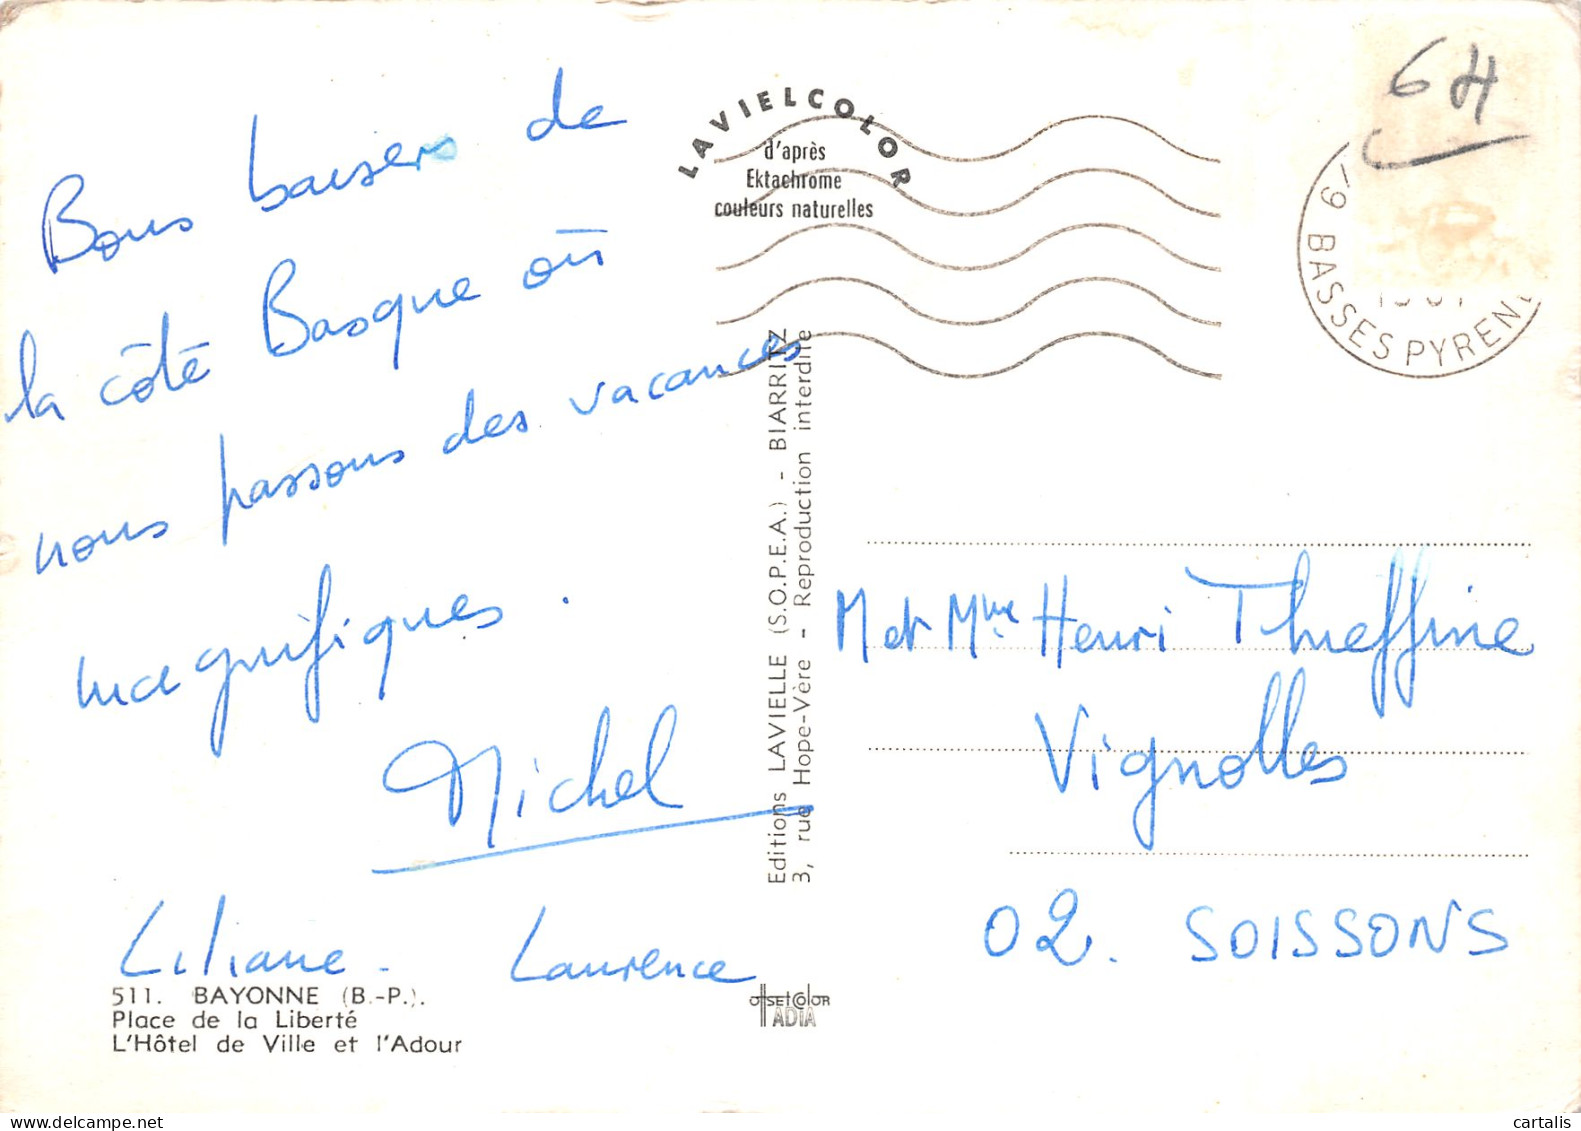 Bons baisers de
la côté Basque où
nous passons des vacances
magnifiques.
Michel
Liliane. Laurence
511. BAYONNE (B.-P.).
Place de la Liberté
L'Hôtel de Ville et l'Adour
LAVIELCOLOR
d'après
Ektachrome
couleurs naturelles
Editions LAVIELLE (S.O.P.E.A.) - BIARRITZ
3, rue Hope-Vère - Reproduction interdite
offsetcolor
ADIA
64
BASSES PYREN
M et Mme Henri Thieffine
Vignolles
02. SOISSONS
cartalis